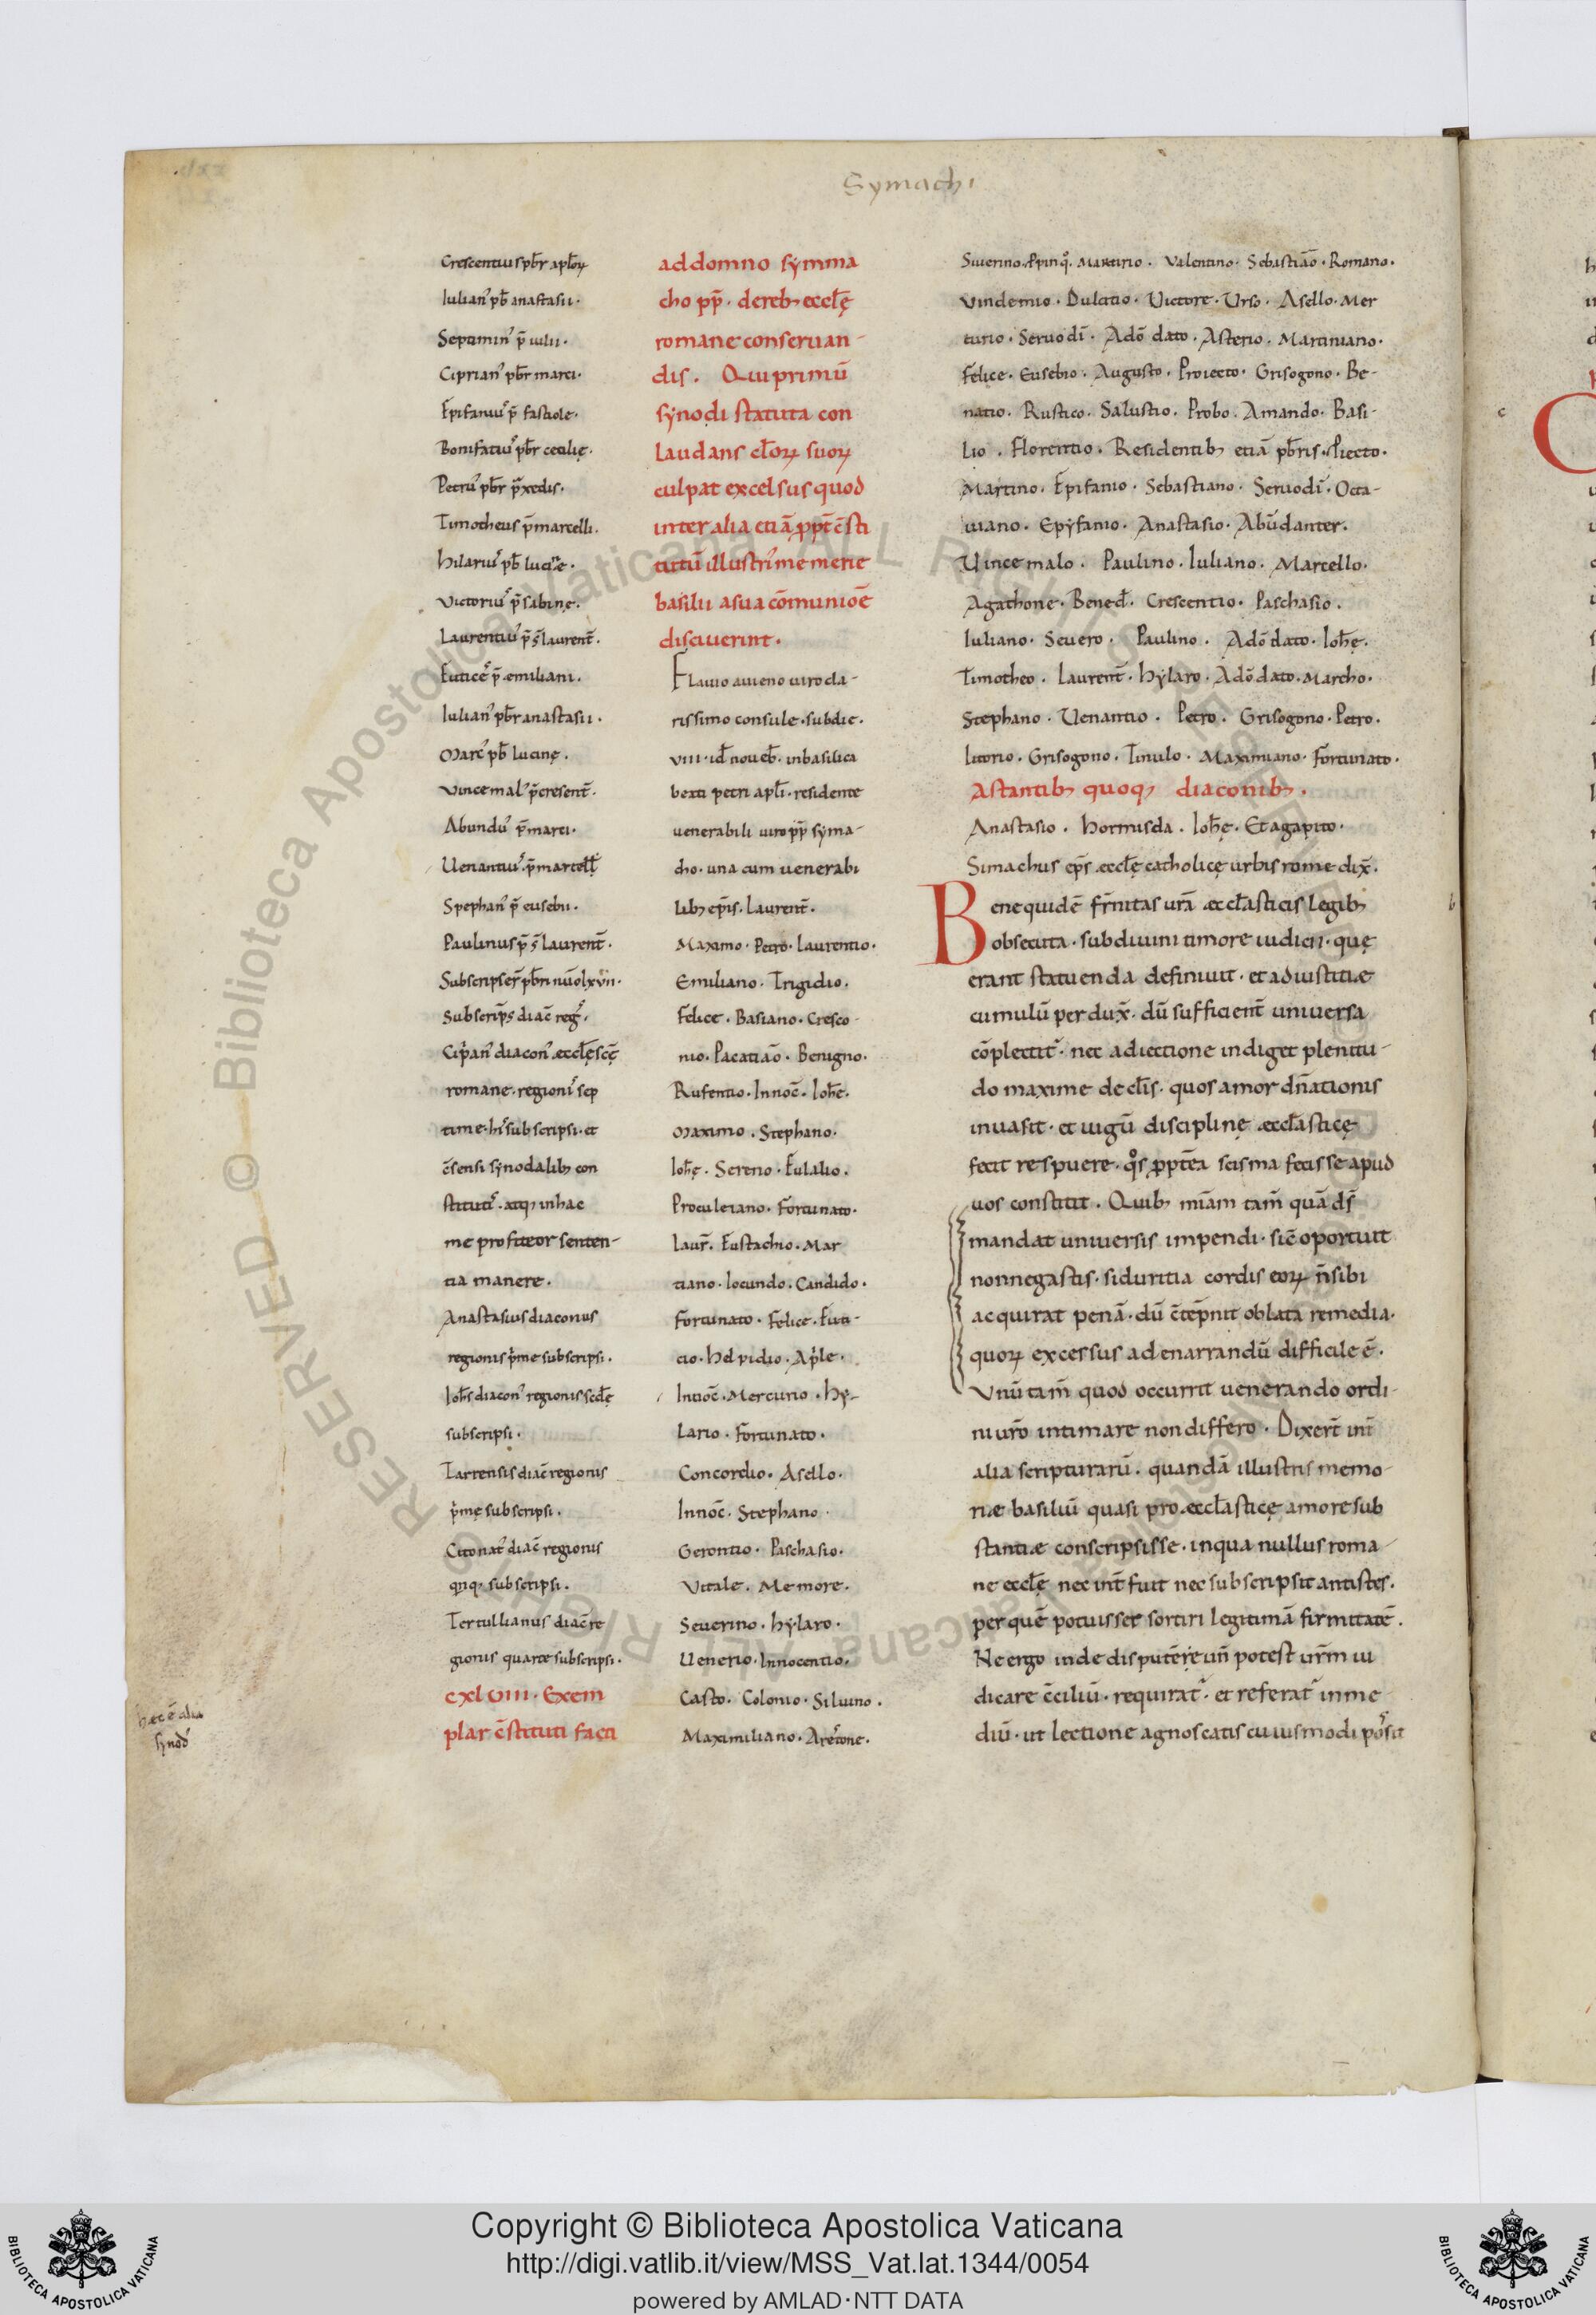 Symachi
Crescentius pb̄r apl̄oꝝ
Iulian' pb̄ anastasii ·
Septimin' p̄ iulii ·
Ciprian' pb̄r marci ·
Epifaniu' p̄ fasciole ·
Bonifatiu' pb̄r cecilię ·
Petru' pb̄r p̄xedis ·
Timotheus p̄ marcelli ·
Hilariu' pb̄ lucine ·
Victoriu' p̄ sabinę ·
Laurentiu' p̄ s̄ laurent̄ ·
Eutice' p̄ emiliani ·
Iulian' pb̄r anastasii ·
Marc' pb̄ lucinę ·
Vincemal' p̄ cresent̄ ·
Abundu' p̄ marci ·
Uenantiu' p̄ marcell̄
Spephan' p̄ eusebii ·
Paulinus p̄ s̄ laurent̄ ·
Subscripser̄ pb̄ri nūo lxvii ·
Subscrip̄s diac̄ reg' ·
Cip̄an' diacon' æccl̄ę sc̄ę
romane · regioni' sep
time · hi' subscripsi · et
c̄sensi synodalib; con
stituti' · atq; in hac
me profiteor senten-
tia manere ·
Anastasius diaconus
regionis p̄me subscripsi ·
Ioh̄s diacon' regionis secd̄ę
subscripsi ·
Tarrensis diac̄ regionis
p̄mę subscripsi ·
Citonat' diac̄ regionis
qnq· subscripsi ·
Tertullianus diac̄ re
gionis quartæ subscripsi ·
cxlviii · Exem
plar c̄stituti facti
hæc ē alia
synod'
ad domno symma
cho pp̄ · de reb; eccl̄ę
romane conseruan-
dis · Qui primū
synodi statuta con
laudans cl̄oꝝ suoꝝ
culpat excelsus quod
inter alia etiā ꝓpt̄ c̄sti
tutū illustri' memerie
basilii a sua cōmunioē
disciuerint ·
Flauio auieno uiro cla-
rissimo consule · sub die ·
viii · id̄ noueb̄ · in basilica
beati petri apl̄i · residente
uenerabili uiro pp̄ syma-
cho · una cum uenerabi
lib; ep̄is · Laurent̄ ·
Maximo · Petro · Laurentio ·
Emiliano · Trigidio ·
Felice · Basiano · Cresco-
nio · Pacatiāo · Benigno ·
Rufentio · Innoc̄ · Ioh̄e ·
Maximo · Stephano ·
Ioh̄ę · Sereno · Eulalio ·
Proculeiano · Fortunato ·
Laur̄ · Eustachio · Mar
tiano · Iocundo · Candido ·
Fortunato · Felice · Euti-
cio · Helpidio · Ap̄le ·
Intioc̄ · Mercurio · Hy-
lario · Fortunato ·
Concordio · Asello ·
Innoc̄ · Stephano ·
Gerontio · Paschasio ·
Vitale · Memore ·
Seuerino · Hylaro ·
Uenerio · Innocentio ·
Casto · Colonio · Siluino ·
Maximiliano · Aretone ·
Siuerino · Ppinq̊ · Martirio · Valentino · Sebastiāo · Romano ·
Vindemio · Dulcitio · Uictore · Urso · Asello · Mer
turio · Seruodī · Adō dato · Asterio · Martiniano ·
Felice · Eusebio · Augusto · Proiecto · Grisogono · Be-
natio · Rustico · Salustio · Probo · Amando · Basi-
lio · Florentio · Residentib; etiā pb̄ris · Piecto ·
Martino · Epifanio · Sebastiano · Seruodī · Octa-
uiano · Epyfanio · Anastasio · Abūdanter ·
Uincemalo · Paulino · Iuliano · Marcello ·
Agathone · Bened̄ · Crescentio · Paschasio ·
Iuliano · Seuero · Paulino · Adō dato · Ioh̄ę ·
Timotheo · Laurent̄ · Hylaro · Adō dato · Marcho ·
Stephano · Uenantio · Petro · Grisogono · Petro ·
Litorio · Grisogono · Tinulo · Maximiano · Fortunato ·
Astantib; quoq; diaconib; ·
Anastasio · Hormisda · Ioh̄ę · Et agapito ·
Simachus ep̄s æccl̄ę catholicę urbis rome dix̄ ·
Bene quidē fr̄nitas ur̄a æccl̄asticis legib;
obsecuta · sub diuini timore iudicii · quę
erant statuenda definiuit · et ad iustitiæ
cumulū perdux̄ · dū sufficient̄ uniuersa
cōplectit' · nec adiectione indiget plenitu-
do maxime de cl̄is · quos amor dn̄ationis
inuasit · et iugū disciplinę æccl̄asticę
fecit respuere · q̊s ꝓpt̄ea scisma fecisse apud
uos constitit · Quib; mīam tam̄ quā ds̄
mandat uniuersis impendi · sic̄ oportuit
non negastis · si duritia cordis eoꝝ n̄ sibi
acquirat penā · dū c̄tēpnit oblata remedia ·
quoꝝ excessus ad enarrandū difficile ē ·
Unū tam̄ quod occurrit uenerando ordi-
ni uro̅ intimare non differo · Dixer̄t int̄
alia scripturarū · quandā illustris memo-
riæ basiliū quasi pro æccl̄asticę amore sub
stantiæ conscripsisse · in qua nullus roma-
ne eccl̄ę nec int̄fuit nec subscripsit antistes ·
per quē potuisset sortiri legitimā firmitatē ·
Ne ergo inde disputēre un̄ potest ur̄m iu
dicare c̄ciliū · requirat' · et referat' in me
diū · ut lectione agnoscatis cuiusmodi possit
c
b
Copyright © Biblioteca Apostolica Vaticana
http://digi.vatlib.it/view/MSS_Vat.lat.1344/0054
powered by AMLAD·NTT DATA
BIBLIOTECA APOSTOLICA VATICANA
BIBLIOTECA APOSTOLICA VATICANA